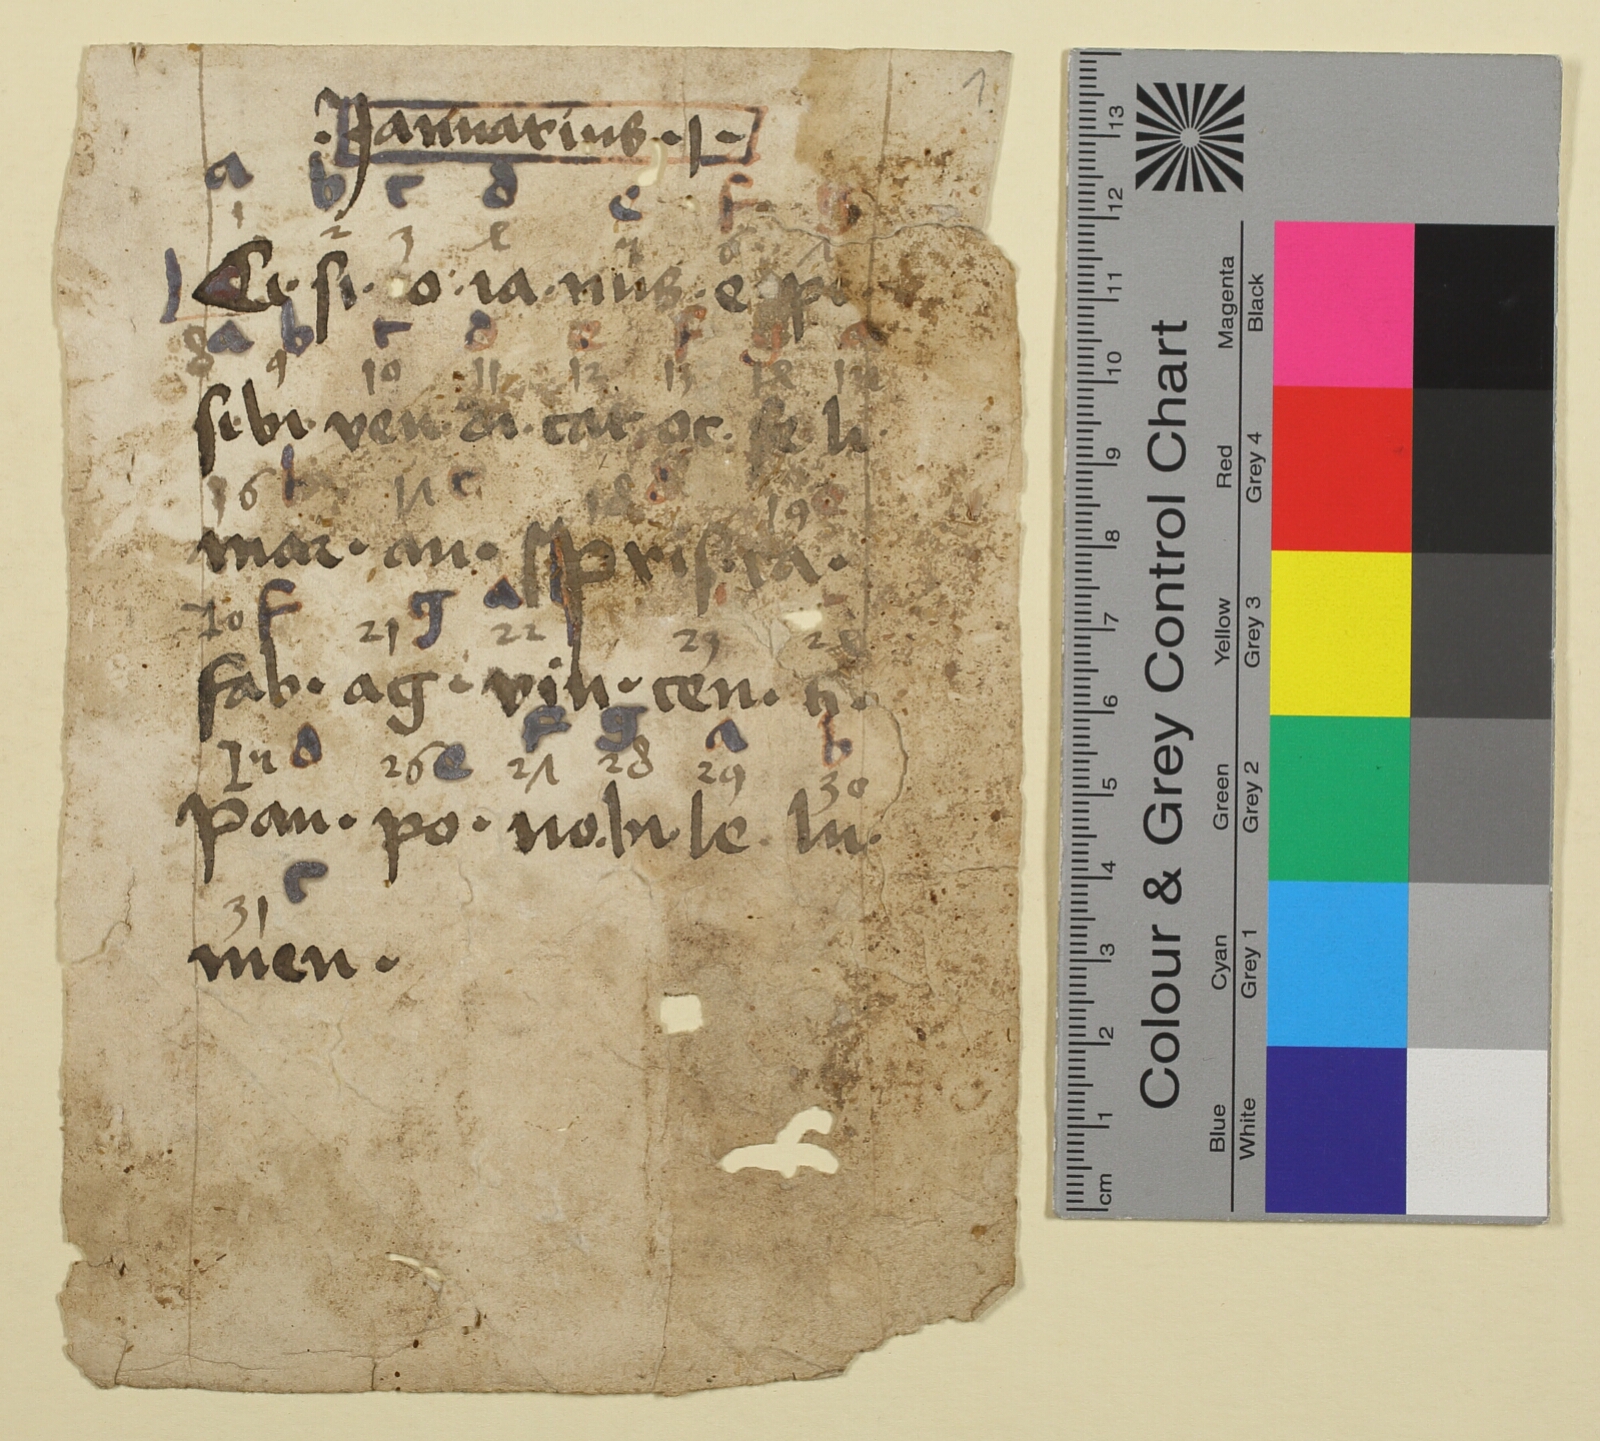 1
Januarius · 1 ·
a b c d e f g
1 2 3 4 5 6 7
Ci· si· o· ia· nus· e pi
a b c d e f g a
8 9 10 11 12 13 14 15
si·bi· ven· di· cat· oc· fe li·
b c d e
16 17 18 19
mar· an· pris·ca·
f g a
20 21 22 23 24
fab· ag· vin· cen· ti·
d e f g a b
25 26 27 28 29 30
pau· po· no·bi·le· lu·
c
31
men·
13
12
11
10
9
8
7
6
5
4
3
2
1
cm
Colour & Grey Control Chart
Blue Cyan Green Yellow Red Magenta
White Grey 1 Grey 2 Grey 3 Grey 4 Black